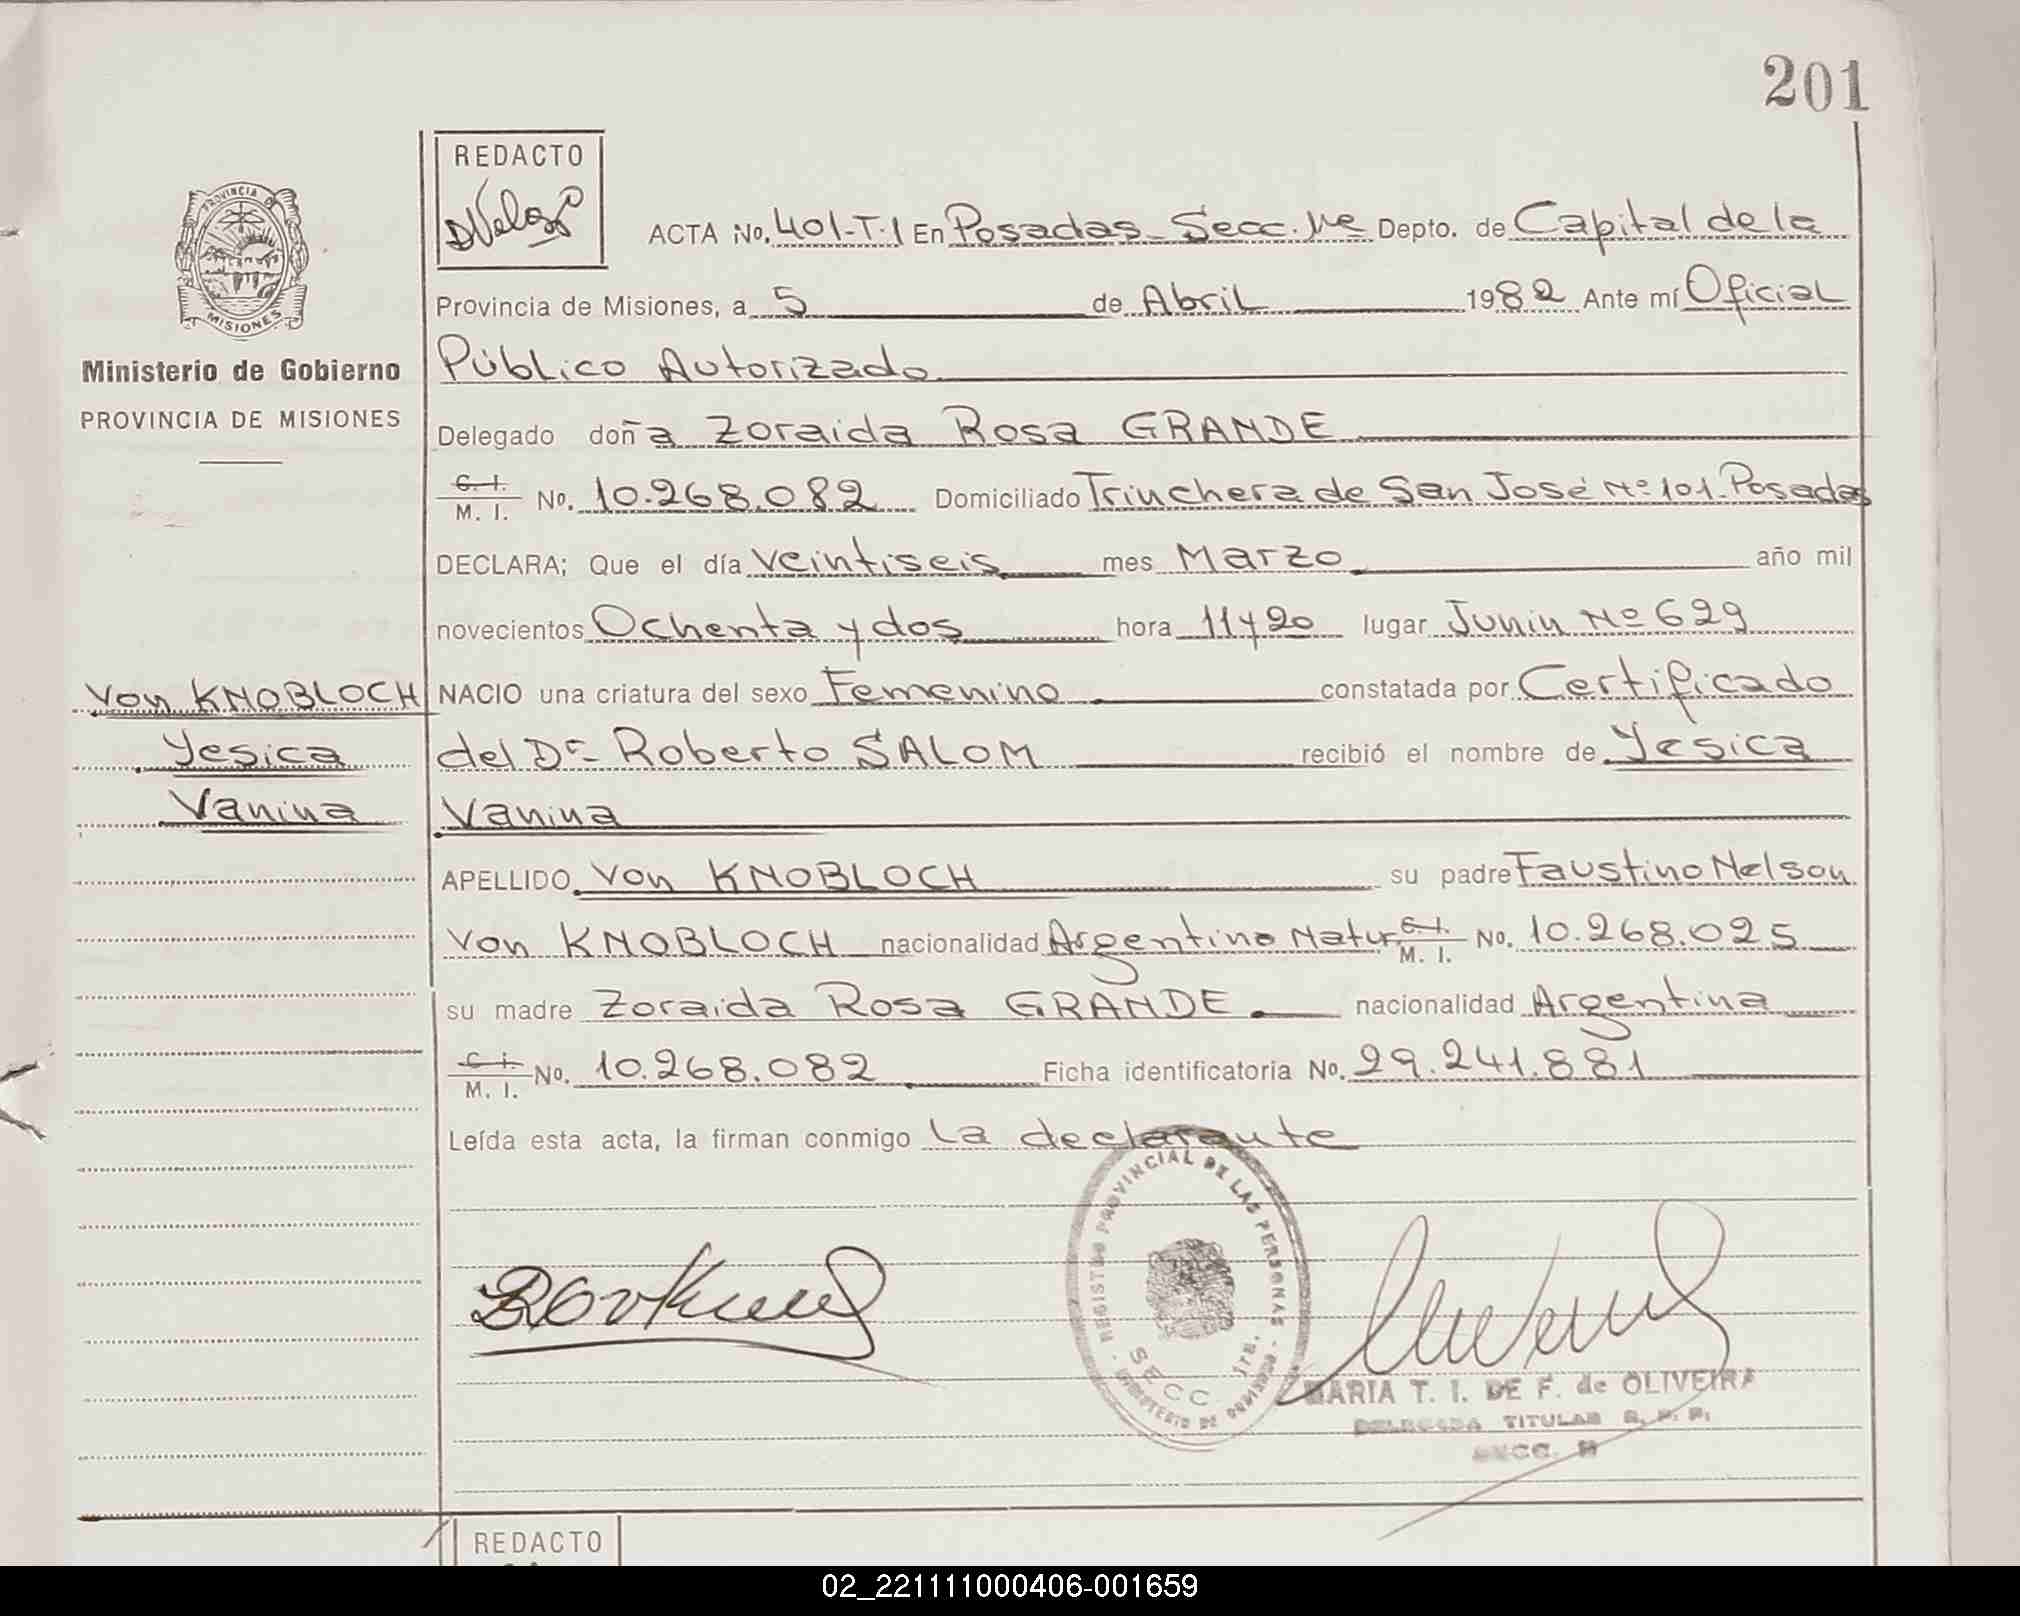 201
REDACTO
PROVINCIA DE
MISIONES
ACTA No. 401-T.1 En Posadas - Secc. 1ra Depto. de Capital de la
Provincia de Misiones, a 5 de Abril 1982 Ante mí Oficial
Ministerio de Gobierno
PROVINCIA DE MISIONES
Público Autorizado
Delegado doña Zoraida Rosa GRANDE
C. I.
M. I. No. 10.268.082 Domiciliado Trinchera de San José Nº 101 - Posadas
DECLARA; Que el día veintiseis mes Marzo año mil
novecientos Ochenta y dos hora 11 y 20 lugar Junin Nº 629
von KNOBLOCH
Yesica
Vanina
NACIO una criatura del sexo Femenino constatada por Certificado
del Dr. Roberto SALOM recibió el nombre de Yesica
Vanina
APELLIDO von KNOBLOCH su padre Faustino Nelson
von KNOBLOCH nacionalidad Argentino Natur C. I.
M. I. No. 10.268.025
su madre Zoraida Rosa GRANDE nacionalidad Argentina
C. I.
M. I. No. 10.268.082 Ficha identificatoria No. 29.241.881
Leída esta acta, la firman conmigo la declarante
REGISTRO PROVINCIAL DE LAS PERSONAS
SECC. 1ra.
MINISTERIO DE GOBIERNO
MARIA T. I. DE F. de OLIVEIRA
DELEGADA TITULAR R. P. P.
SECC.
REDACTO
02_221111000406-001659